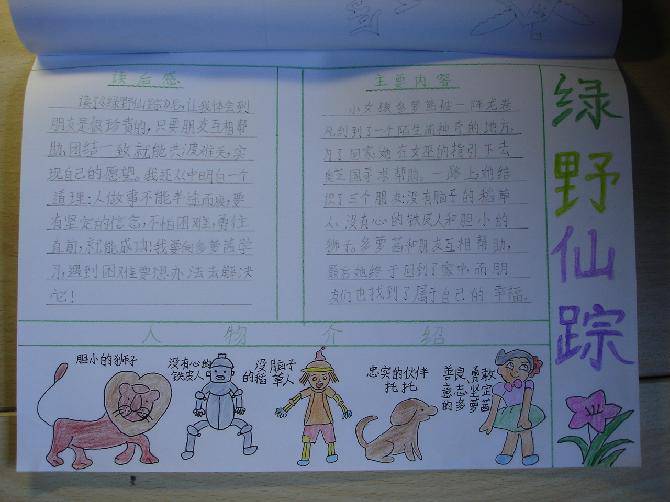 绿野仙踪
读后感
读段绿野仙踪吧,让我体会到
朋友是很珍贵的,只要朋友互相帮
助,团结一致就能共渡难关,实
现自己的愿望。我还从中明白一个
道理:人做事不能半途而废,要
有坚定的信念,不怕困难,勇往
直前,就能成功!我要向多萝茜学
习,遇到困难要想办法去解决
它!
主要内容
小女孩多萝茜被一阵龙卷
风刮到了一个陌生而神奇的地方,
为了回家,她在女巫的指引下去
寻求帮助。一路上她结
识了三个朋友:没有脑子的稻草
人、没有心的铁皮人和胆小的
狮子,多萝茜和朋友互相帮助,
最后她终于回到了家中,而朋
友们也找到了属于自己的幸福。
人物介绍
胆小的狮子
没有心的
铁皮人
没脑子
的稻草人
忠实的伙伴
托托
善良、勇敢
意志坚定
的多萝茜